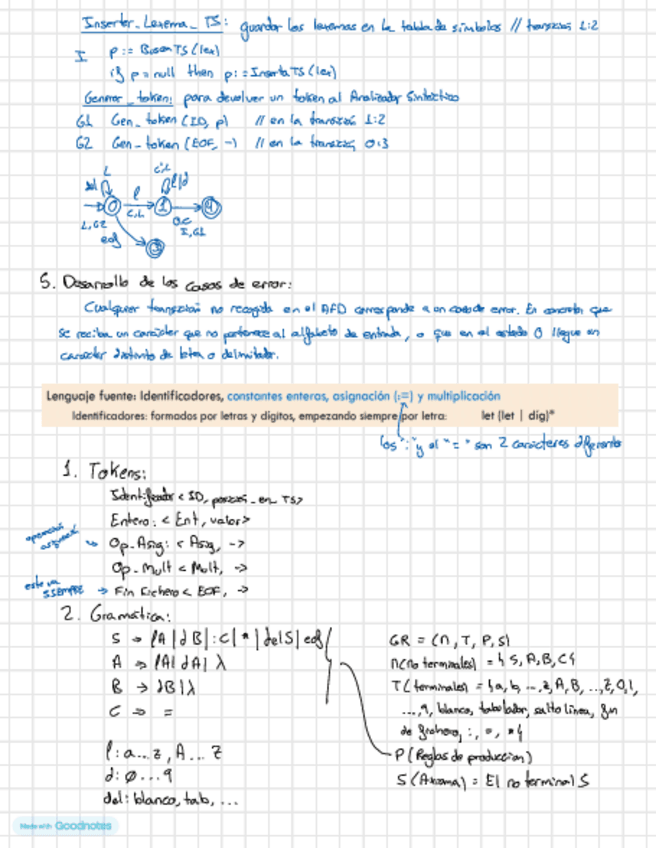 Insertar_Lexema_TS: guardar los lexemas en la tabla de símbolos // transición 1:2
I p := BuscaTS(lex)
if p = null then p := InsertaTS(lex)
Generar_token: para devolver un token al Analizador Sintáctico
G1 Gen_token (ID, p) // en la transición 1:2
G2 Gen_token (EOF, -) // en la transición 0:3
L
l
C,L
l/d
0
1
o.c
I,G1
L,G2
eof
3
5. Desarrollo de los casos de error:
Cualquier transición no recogida en el AFD corresponde a un caso de error. En concreto que
se reciba un carácter que no pertenece al alfabeto de entrada, o que en el estado 0 llegue un
carácter distinto de letra o delimitador.
Lenguaje fuente: Identificadores, constantes enteras, asignación (:=) y multiplicación
Identificadores: formados por letras y dígitos, empezando siempre por letra: let (let | dig)*
los ":" y el "=" son 2 caracteres diferentes
1. Tokens:
Identificador < ID, posición_en_TS>
Entero: < Ent, valor>
operación asignación → Op_Asig: < Asig, ->
Op_Mult < Mult, ->
este va SIEMPRE → Fin Fichero < EOF, ->
2. Gramática:
S → lA | dB | :C | * | delS | eof
A → lA | dA | λ
B → dB | λ
C → =
l: a...z, A...Z
d: 0...9
del: blanco, tab, ...
GR = (N, T, P, S)
N(no terminales) = { S, A, B, C }
T(terminales) = { a, b, ..., z, A, B, ..., Z, 0, 1,
..., 9, blanco, tabulador, salto línea, fin
de fichero, :, =, * }
P (Reglas de producción)
S (Axioma) = El no terminal S
Made with Goodnotes